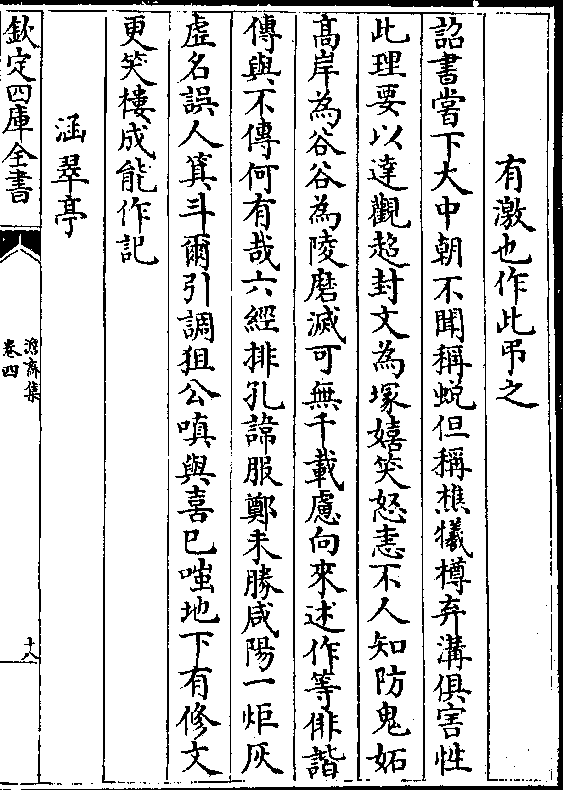 有激也作此弔之
詔書嘗下大中朝不聞稱蜕但稱樵犧樽弃溝俱害性
此理要以達觀超封文為塚嬉笑怒恚不人知防鬼妬
髙岸為谷谷為陵磨滅可無千載慮向來述作等俳諧
傳與不傳何有哉六經排孔諱服鄭未勝咸陽一炬灰
虚名誤人箕斗爾引調狙公嗔與喜巳嗤地下有修文
更笑樓成能作記
涵翠亭
欽定四庫全書
澹齋集
卷四
十八